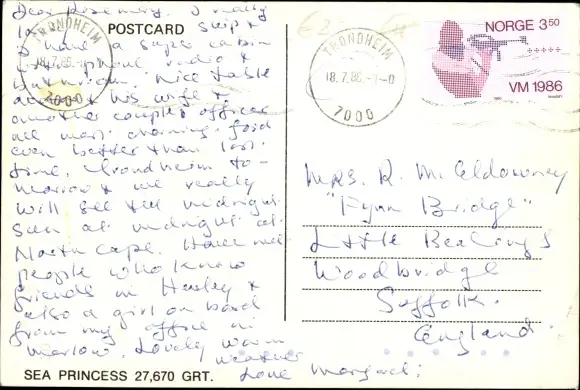 POSTCARD
Dear Rosemary. I really
ship &
I have a super cabin
phone radio &
bathroom. Nice table
& his wife &
another couple officer
all most charming. food
even better than last
time. Trondheim to-
morrow & we really
will see the midnight
sun at midnight at
North Cape. Have met
people who know
friends in Henley &
also a girl on board
from my office in
Marlow. Lovely warm
weather
Love Margaret.
SEA PRINCESS 27,670 GRT.
TRONDHEIM
18.7.86
7000
TRONDHEIM
18.7.86
7000
NORGE 3.50
VM 1986
Mrs. R. McEldowney
"Fynn Bridge"
Little Bealings
Woodbridge
Suffolk.
England.